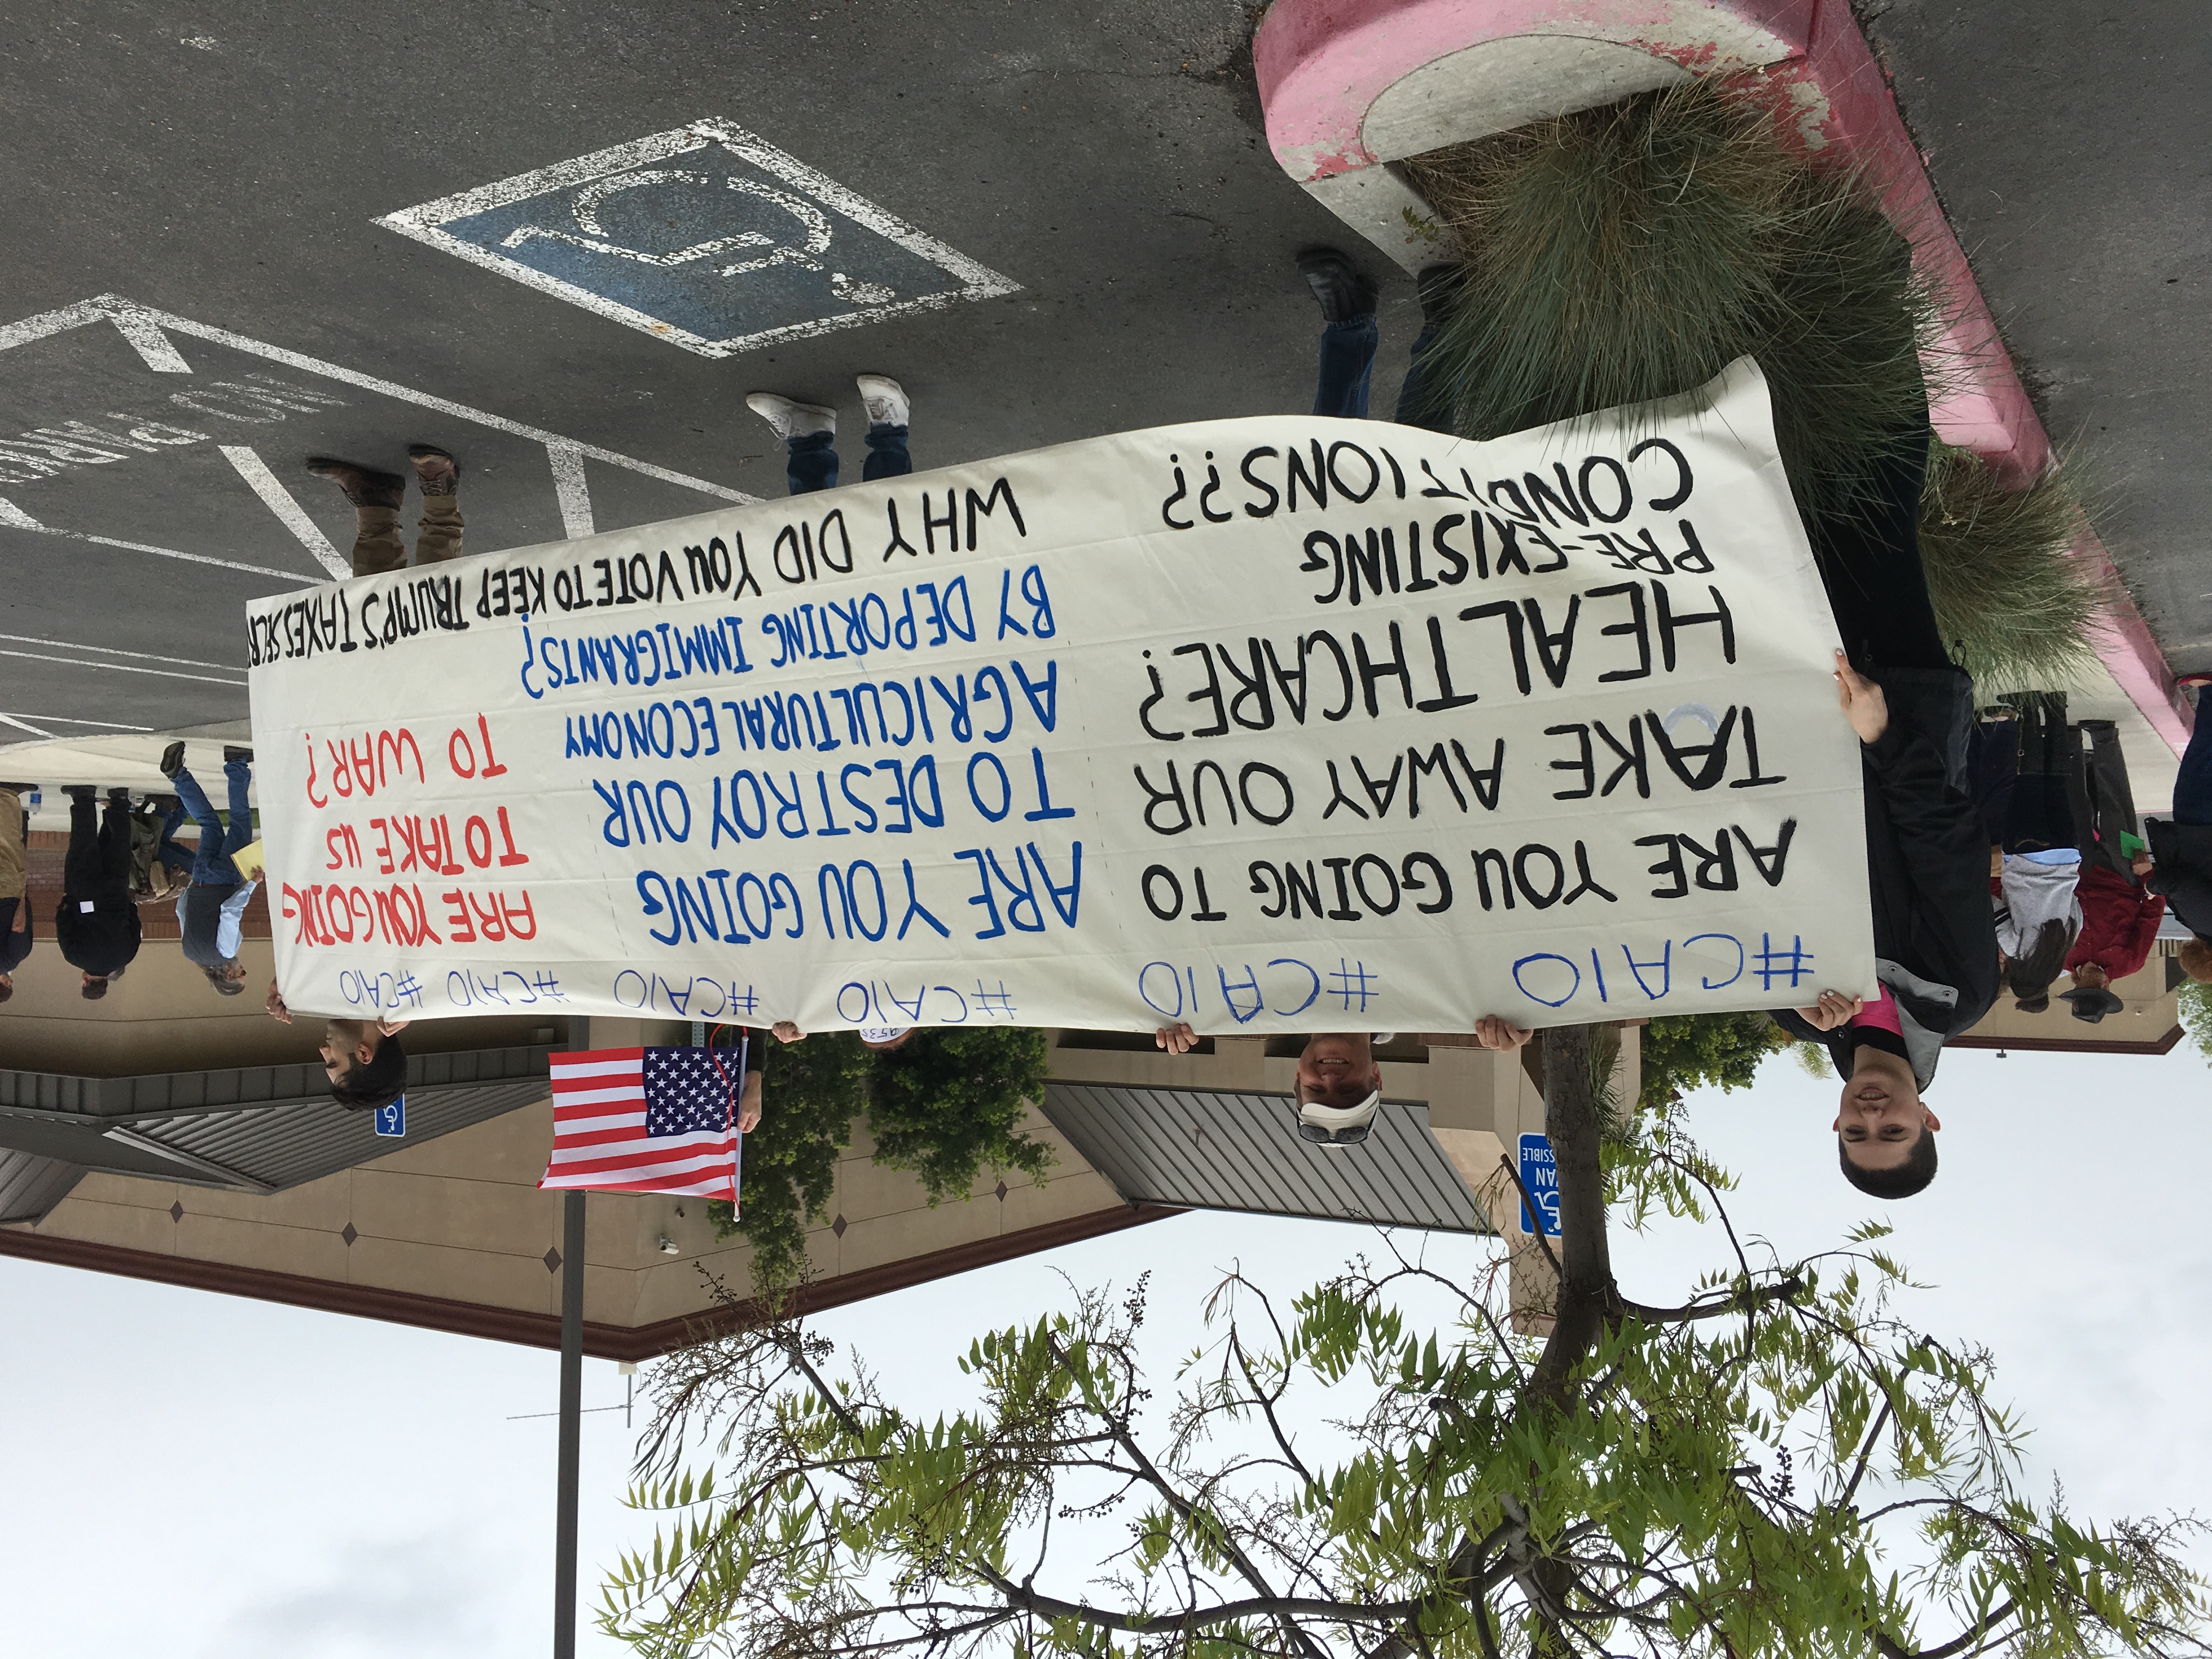 VAN
#CA10 #CA10 #CA10 #CA10 #CA10 #CA10
ARE YOU GOING TO
TAKE AWAY OUR
HEALTHCARE?
PRE-EXISTING
CONDITIONS??
ARE YOU GOING
TO DESTROY OUR
AGRICULTURAL ECONOMY
BY DEPORTING IMMIGRANTS?
ARE YOU GOING
TO TAKE US
TO WAR?
WHY DID YOU VOTE TO KEEP TRUMP'S TAXES SECR
NO PARK